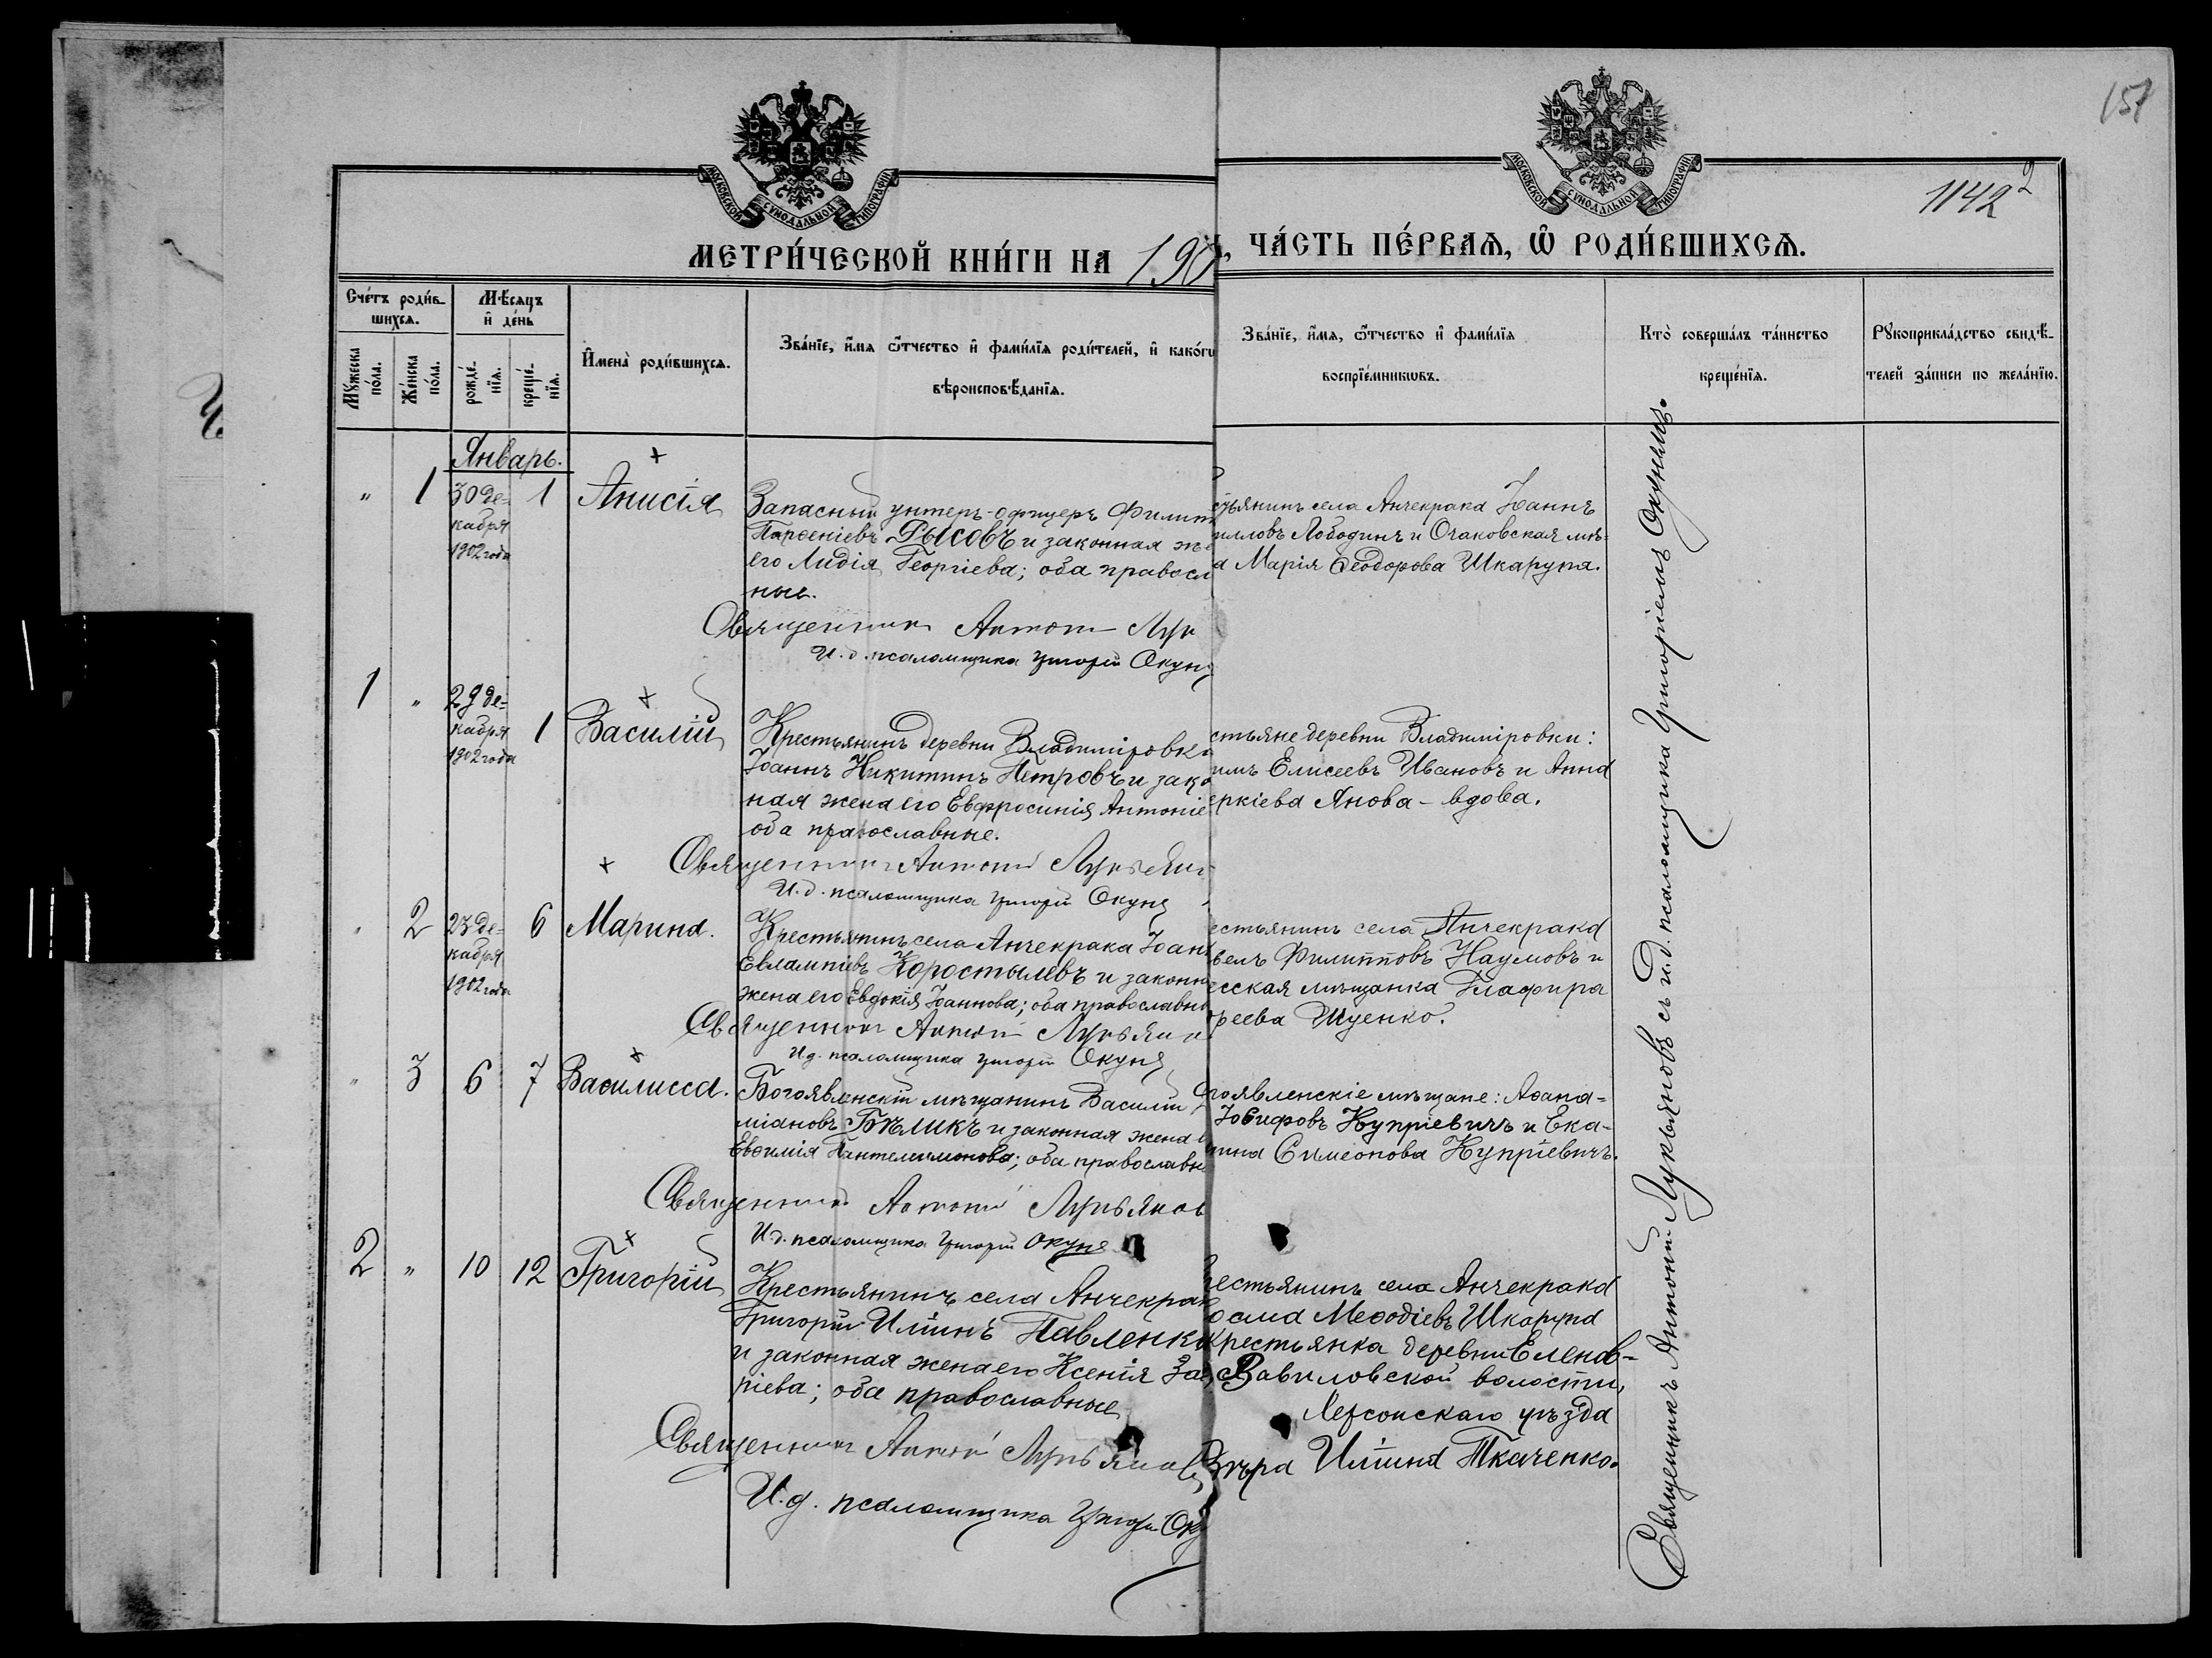 157
1142²
МОСКОВСКОЙ СУНОДАЛЬНОЙ ТИПОГРАФІИ
МОСКОВСКОЙ СУНОДАЛЬНОЙ ТИПОГРАФІИ
МЕТРИ́ЧЕСКОЙ КНИ́ГИ НА 190
ЧА́СТЬ ПЕ́РВАѦ, Ѿ РОДИ́ВШИХСѦ.
Сче́тъ роди́в-
шихсѧ.
Мѣ́сѧцъ
и҆ де́нь
Мꙋ́жеска
по́ла.
Же́нска
по́ла.
рожде́-
нїѧ.
креще́-
нїѧ.
И҆мена̀ роди́вшихсѧ.
Зва́нїе, и҆́мѧ ѻ҆́тчество и҆ фами́лїѧ роди́телей, и҆ како́гѡ
вѣроисповѣ́данїѧ.
Зва́нїе, и҆́мѧ, ѻ҆́тчество и҆ фами́лїѧ
воспрїе́мникѡвъ.
Кто̀ соверша́лъ та́инство
креще́нїѧ.
Рꙋкоприкла́дство свидѣ́-
телей за́писи по жела́нїю.
Январь.
" 1 30 де- 1 Анисія
кабря
1902 года
Запасный унтеръ-офицеръ Филип
Парѳеніевъ Рысовъ и законная же
его Лидія Георгіева; оба правосл
ные.
Священникъ Антоній Лук
И.д. псаломщика Григорій Окунь
стьянинъ села Анчекрака Іоаннъ
илловъ Лободинъ и Очаковская мѣ-
а Марія Ѳеодорова Шкарупа.
1 " 29 де- 1 Василій
кабря
1902 года
Крестьянинъ деревни Владиміровки
Іоаннъ Никитинъ Петровъ и зако
ная жена его Евфросинія Антоніе
оба православные.
Священникъ Антоній Лукьян
И.д. псаломщика Григорій Окунь
стьяне деревни Владиміровки:
имъ Елисеевъ Ивановъ и Анна
еркіева Янова - вдова.
" 2 23 де- 6 Марина.
кабря
1902 года
Крестьянинъ села Анчекрака Іоан
Евлампіевъ Коростылевъ и законн
жена его Евдокія Іоаннова; оба православны
Священникъ Антоній Лукьян
И.д. псаломщика Григорій Окунь
естьянинъ села Анчекрака
велъ Филипповъ Наумовъ и
есская мѣщанка Глафира
реева Ищенко.
" 3 6 7 Василисса.
Богоявленскій мѣщанинъ Василій
міановъ Бѣликъ и законная жена е
Евѳимія Пантелеимонова; оба православн
Священникъ Антоній Лукьянов
И.д. псаломщика Григорій Окунь
гоявленскіе мѣщане: Аѳана-
Іосифовъ Купріевичъ и Ека-
рина Симеонова Купріевичъ.
2 " 10 12 Григорій
Крестьянинъ села Анчекрак
Григорій Иліинъ Павленко
и законная жена его Ксенія За
ріева; оба православные
Священникъ Антоній Лукьянов
И.д. псаломщика Григорій Оку
рестьянинъ села Анчекрака
осма Меѳодіевъ Шкарупа
крестьянка деревни Еленов-
Вавиловской волости,
Херсонскаго уѣзда
Вѣра Иліина Ткаченко.
Священникъ Антоній Лукьяновъ съ и.д. псаломщика Григоріемъ Окунемъ.